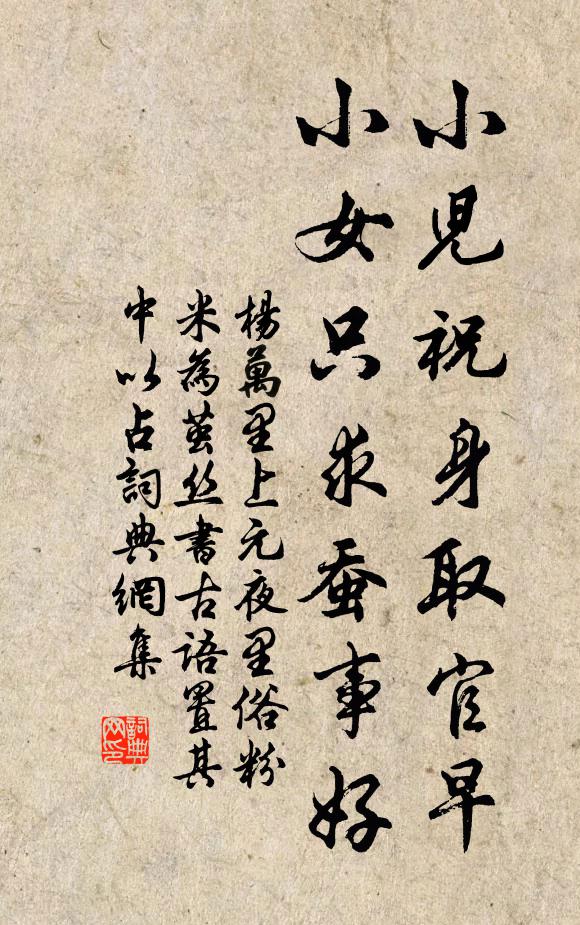 小児祝身取官早
小女只求蚕事好
楊萬里上元夜里俗粉
米為茧丝書古語置其
中以占詞典網集
詞典网印